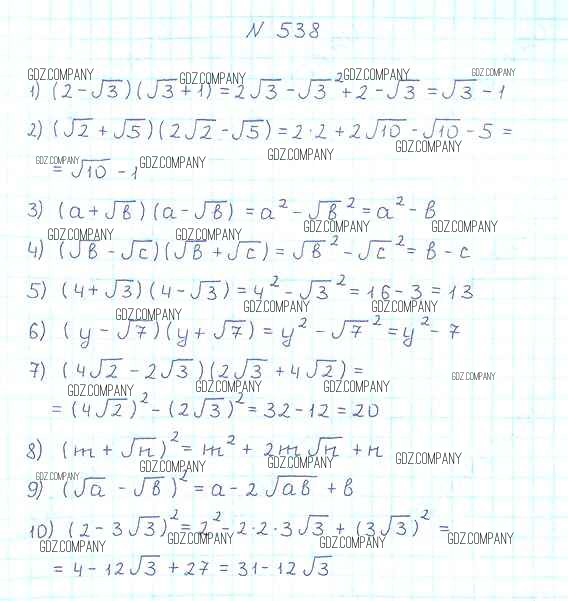 N 538
GDZ.COMPANY GDZ.COMPANY GDZ.COMPANY GDZ.COMPANY
1) (2-√3)(√3+1) = 2√3 - √3² + 2 - √3 = √3 - 1
2) (√2 + √5)(2√2 - √5) = 2·2 + 2√10 - √10 - 5 =
GDZ.COMPANY GDZ.COMPANY GDZ.COMPANY GDZ.COMPANY
= √10 - 1
3) (a + √в)(a - √в) = a² - √в² = a² - в
GDZ.COMPANY GDZ.COMPANY GDZ.COMPANY GDZ.COMPANY
4) (√в - √c)(√в + √c) = √в² - √c² = в - c
5) (4 + √3)(4 - √3) = 4² - √3² = 16 - 3 = 13
GDZ.COMPANY GDZ.COMPANY GDZ.COMPANY
6) (y - √7)(y + √7) = y² - √7² = y² - 7
7) (4√2 - 2√3)(2√3 + 4√2) =
GDZ.COMPANY GDZ.COMPANY GDZ.COMPANY GDZ.COMPANY
= (4√2)² - (2√3)² = 32 - 12 = 20
8) (m + √n)² = m² + 2m√n + n
GDZ.COMPANY GDZ.COMPANY GDZ.COMPANY GDZ.COMPANY
9) (√a - √в)² = a - 2√aв + в
10) (2 - 3√3)² = 2² - 2·2·3√3 + (3√3)² =
GDZ.COMPANY GDZ.COMPANY GDZ.COMPANY GDZ.COMPANY
= 4 - 12√3 + 27 = 31 - 12√3